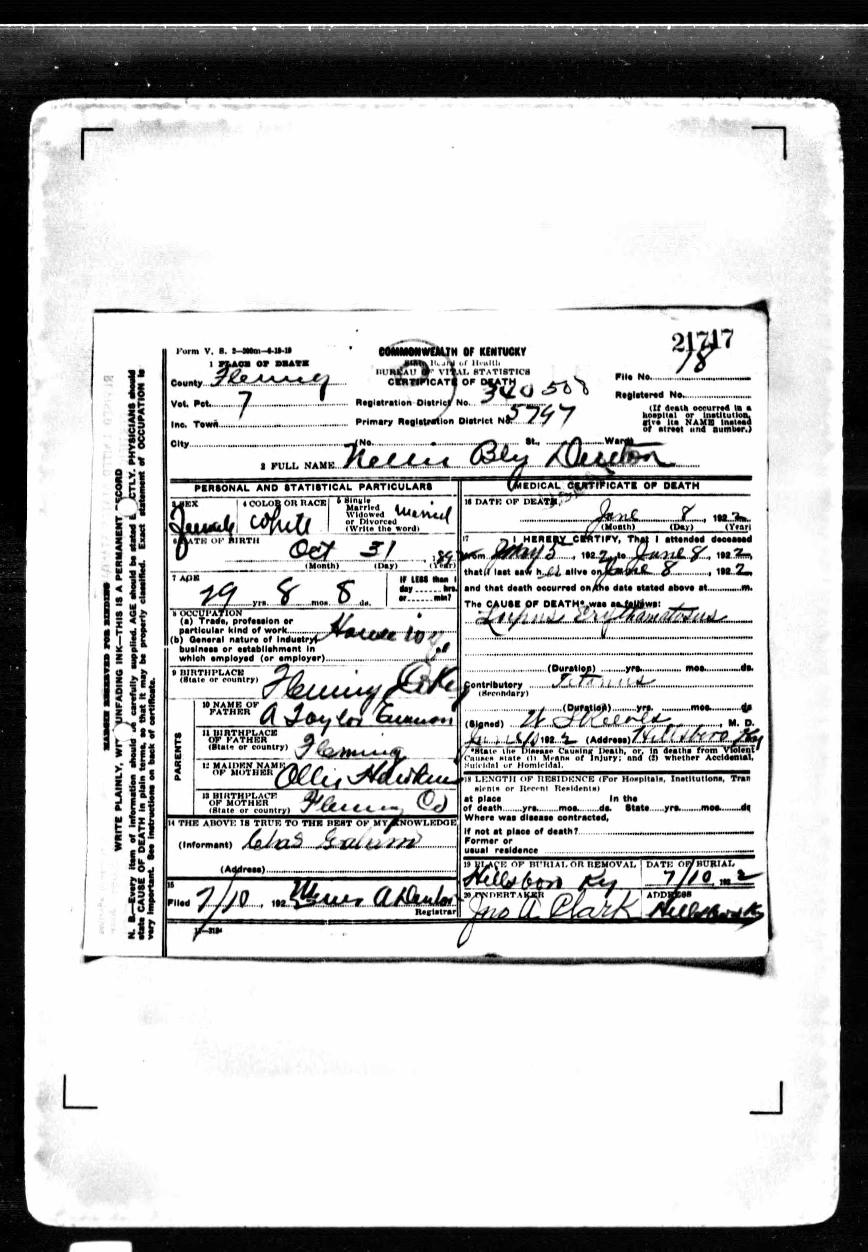 21717
Form V. S. 2-300m-6-19-19
COMMONWEALTH OF KENTUCKY
State Board of Health
BUREAU OF VITAL STATISTICS
CERTIFICATE OF DEATH
1 PLACE OF DEATH
County Fleming
File No. 18
Vot. Pct. 7
Registration District No. 340 508
Registered No.
Inc. Town
Primary Registration District No. 5747
(If death occurred in a hospital or institution, give its NAME instead of street and number.)
City (No. St., Ward)
2 FULL NAME Nellie Bly Denton
PERSONAL AND STATISTICAL PARTICULARS
3 SEX Female
4 COLOR OR RACE White
5 Single Married Widowed or Divorced (Write the word) Married
6 DATE OF BIRTH Oct 31
(Month) (Day) (Year)
7 AGE 29 yrs. 8 mos. 8 ds.
IF LESS than 1 day hrs. or min?
8 OCCUPATION
(a) Trade, profession or particular kind of work
(b) General nature of industry, business or establishment in which employed (or employer)
9 BIRTHPLACE (State or country) Fleming Ky
PARENTS
10 NAME OF FATHER A Taylor
11 BIRTHPLACE OF FATHER (State or country) Fleming
12 MAIDEN NAME OF MOTHER Ollie Hawkins
13 BIRTHPLACE OF MOTHER (State or country) Fleming Co
14 THE ABOVE IS TRUE TO THE BEST OF MY KNOWLEDGE
(Informant) Chas
(Address)
15 Filed 7/10, 192 A Denton
Registrar
11-3184
MEDICAL CERTIFICATE OF DEATH
16 DATE OF DEATH
June 8, 1922
(Month) (Day) (Year)
17 I HEREBY CERTIFY, That I attended deceased
from May 5, 1922, to June 8, 1922
that I last saw her alive on June 8, 1922
and that death occurred on the date stated above at m.
The CAUSE OF DEATH* was as follows:
Lupus Erythamatosus
(Duration) yrs. mos. ds.
Contributory Tetanus
(Secondary)
(Duration) yrs. mos. ds
(Signed) W S Reeves, M. D.
1922 (Address) Hillsboro Ky
*State the Disease Causing Death, or, in deaths from Violent Causes state (1) Means of Injury; and (2) whether Accidental, Suicidal or Homicidal.
18 LENGTH OF RESIDENCE (For Hospitals, Institutions, Tran sients or Recent Residents)
at place of death yrs. mos. ds. In the State yrs. mos. ds
Where was disease contracted,
If not at place of death?
Former or usual residence
19 PLACE OF BURIAL OR REMOVAL Hillsboro Ky
DATE OF BURIAL 7/10, 1922
20 UNDERTAKER Jno A. Clark
ADDRESS Hillsboro Ky
MARGIN RESERVED FOR BINDING
WRITE PLAINLY, WITH UNFADING INK—THIS IS A PERMANENT RECORD
N. B.—Every item of information should be carefully supplied. AGE should be stated EXACTLY. PHYSICIANS should
state CAUSE OF DEATH in plain terms, so that it may be properly classified. Exact statement of OCCUPATION is
very important. See instructions on back of certificate.